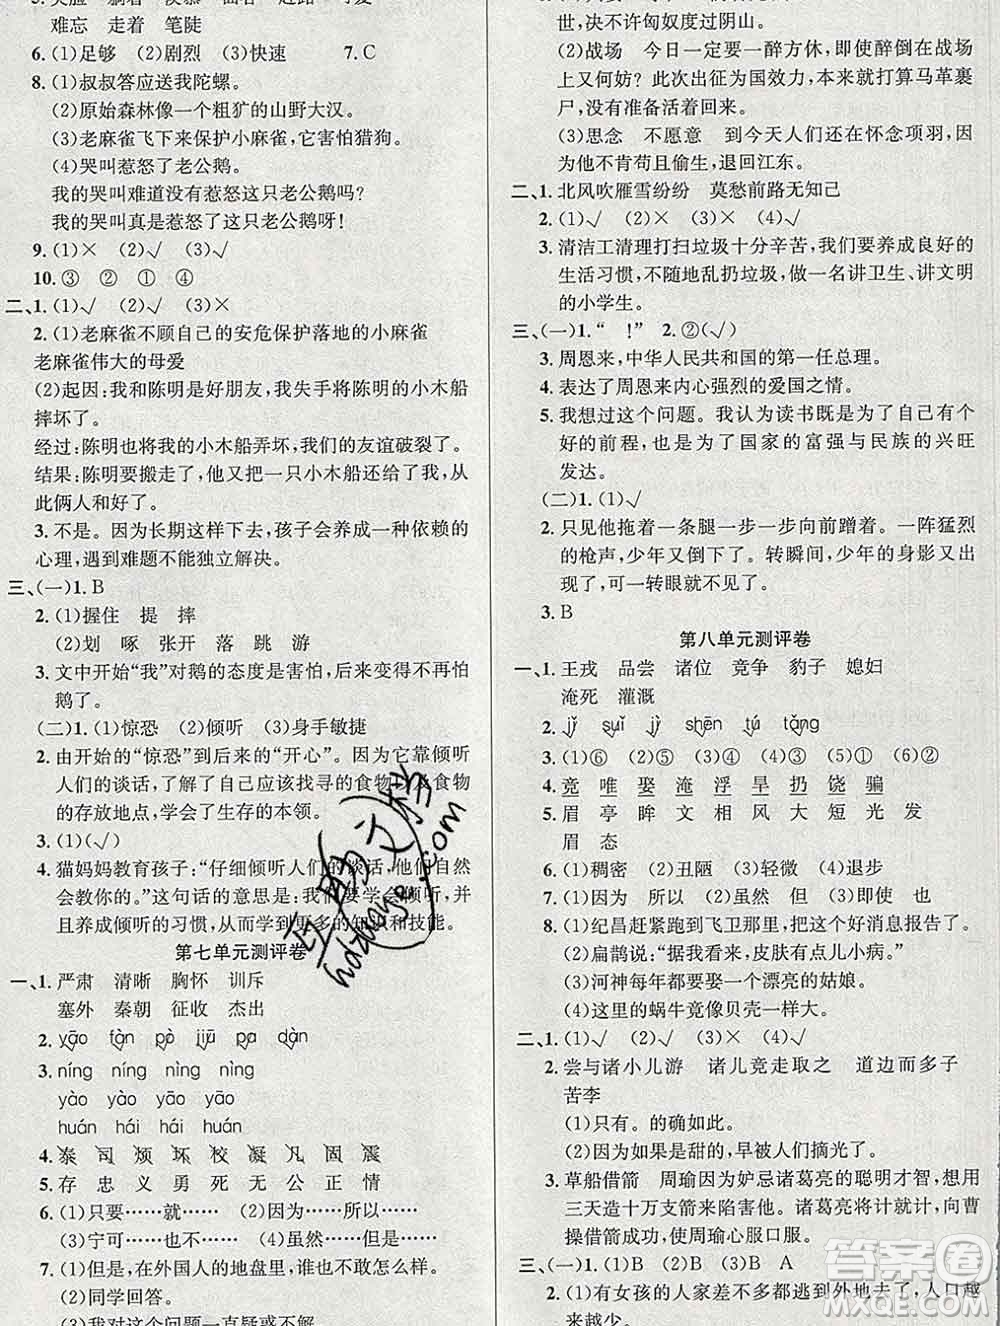 难忘 走着 笔陡
6. (1)足够 (2)剧烈 (3)快速 7. C
8. (1)叔叔答应送我陀螺。
(2)原始森林像一个粗犷的山野大汉。
(3)老麻雀飞下来保护小麻雀,它害怕猎狗。
(4)哭叫惹怒了老公鹅。
我的哭叫难道没有惹怒这只老公鹅吗?
我的哭叫真是惹怒了这只老公鹅呀!
9. (1)× (2)√ (3)√
10. ③ ② ① ④
二、1. (1)√ (2)√ (3)×
2. (1)老麻雀不顾自己的安危保护落地的小麻雀
老麻雀伟大的母爱
(2)起因:我和陈明是好朋友,我失手将陈明的小木船
摔坏了。
经过:陈明也将我的小木船弄坏,我们的友谊破裂了。
结果:陈明要搬走了,他又把一只小木船还给了我,从
此俩人和好了。
3. 不是。因为长期这样下去,孩子会养成一种依赖的
心理,遇到难题不能独立解决。
三、(一)1. B
2. (1)握住 提 摔
(2)划 啄 张开 落 跳 游
3. 文中开始“我”对鹅的态度是害怕,后来变得不再怕
鹅了。
(二)1. (1)惊恐 (2)倾听 (3)身手敏捷
2. 由开始的“惊恐”到后来的“开心”。因为它靠倾听
人们的谈话,了解了自己应该找寻的食物以及食物
的存放地点,学会了生存的本领。
3. (1)(√)
4. 猫妈妈教育孩子:“仔细倾听人们的谈话,他们自然
会教你的。”这句话的意思是:我们要学会倾听,并
且养成倾听的习惯,从而学到更多的知识和技能。
第七单元测评卷
一、1. 严肃 清晰 胸怀 训斥
塞外 秦朝 征收 杰出
2. yāo tàn pò jiū pa dàn
3. níng níng nìng nìng
yào yào yāo yāo
huán hái hái huán
4. 泰 司 烦 坏 校 凝 凡 固 震
5. 存 忠 义 勇 死 无 公 正 情
6. (1)只要……就…… (2)因为……所以……
(3)宁可……也不…… (4)虽然……但是……
7. (1)但是,在外国人的地盘里,谁又敢怎么样呢?
(2)同学回答。
(3)我对这个问题一直疑惑不解。
世,决不许匈奴度过阴山。
(2)战场 今日一定要一醉方休,即使醉倒在战场
上又何妨?此次出征为国效力,本来就打算马革裹
尸,没有准备活着回来。
(3)思念 不愿意 到今天人们还在怀念项羽,因
为他不肯苟且偷生,退回江东。
二、1. 北风吹雁雪纷纷 莫愁前路无知己
2. (1)√ (2)√ (3)× (4)√
3. 清洁工清理打扫垃圾十分辛苦,我们要养成良好的
生活习惯,不随地乱扔垃圾,做一名讲卫生、讲文明
的小学生。
三、(一)1. “ !” 2. ②(√)
3. 周恩来,中华人民共和国的第一任总理。
4. 表达了周恩来内心强烈的爱国之情。
5. 我想过这个问题。我认为读书既是为了自己有个
好的前程,也是为了国家的富强与民族的兴旺
发达。
(二)1. (1)√
2. 只见他拖着一条腿一步一步向前蹭着。一阵猛烈
的枪声,少年又倒下了。转瞬间,少年的身影又出
现了,可一转眼就不见了。
3. B
第八单元测评卷
一、1. 王戎 品尝 诸位 竞争 豹子 媳妇
淹死 灌溉
2. jǐ suǐ jì shēn tú tǎng
3. (1)⑥ (2)⑤ (3)① (4)② (5)④ (6)③
4. 竞 唯 娶 淹 浮 旱 扔 饶 骗
5. 眉 亭 眸 文 相 风 大 短 光 发
眉 态
6. (1)稠密 (2)丑陋 (3)轻微 (4)退步
7. (1)因为 所以 (2)虽然 但 (3)即使 也
8. (1)纪昌赶紧跑到飞卫那里,把这个好消息报告了。
(2)扁鹊说:“据我看来,皮肤有点儿小病。”
(3)河神每年都要娶一个漂亮的姑娘。
(4)这里的蜗牛竟像贝壳一样大。
二、1. (1)√ (2)√ (3)× (4)√
2. 尝与诸小儿游 诸儿竞走取之 道边而多子
苦李
(1)只有。的确如此。
(2)如果是甜的,早被人们摘光了。
3. 草船借箭 周瑜因为妒忌诸葛亮的聪明才智,想用
三天造十万支箭来陷害他。诸葛亮将计就计,向曹
操借箭成功,使周瑜心服口服。
三、(一)1. (1)B (2)B (3)B A
2. (1)有女孩的人家差不多都逃到外地去了,人口越
来越少。
hdzuoye.com
答案圈
MXQE.COM